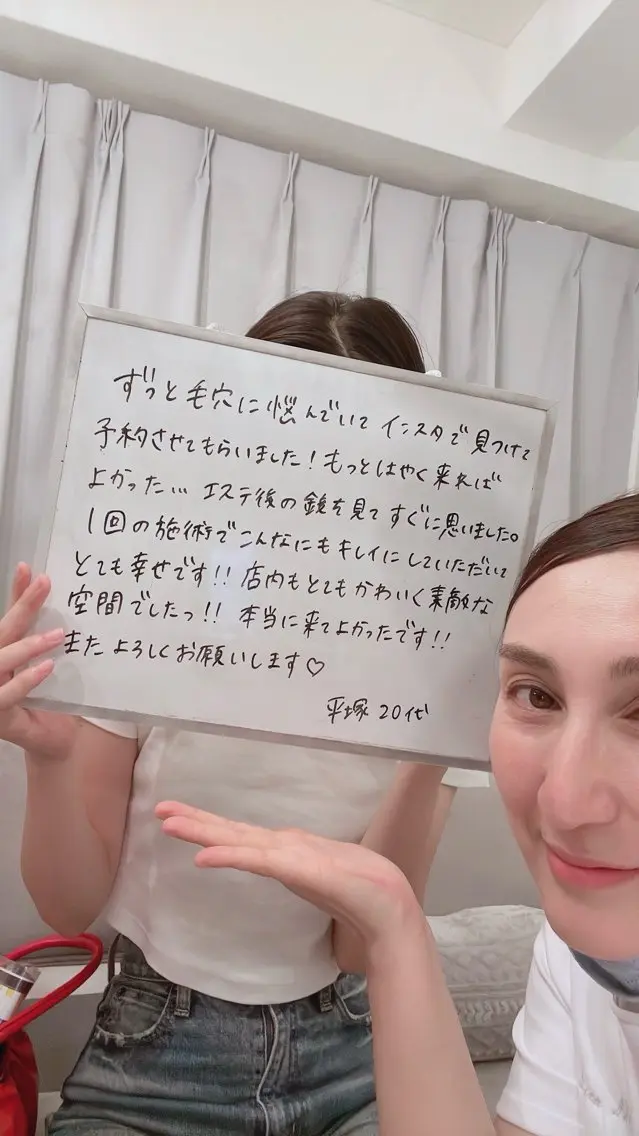 ずっと毛穴に悩んでいて インスタで見つけて
予約させてもらいました！もっとはやく来れば
よかった… エステ後の鏡を見てすぐに思いました。
1回の施術でこんなにもキレイにしていただいて
とても幸せです!! 店内もとてもかわいく素敵な
空間でしたっ!! 本当に来てよかったです!!
またよろしくお願いします♡
平塚 20代